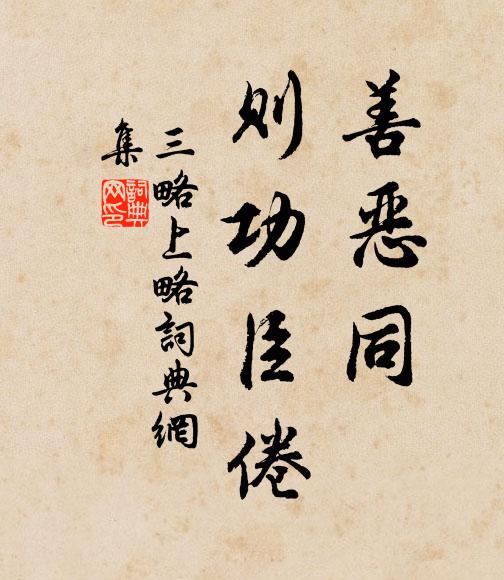 善恶同
则功臣倦
三略上略詞典網
集
詞典
网印